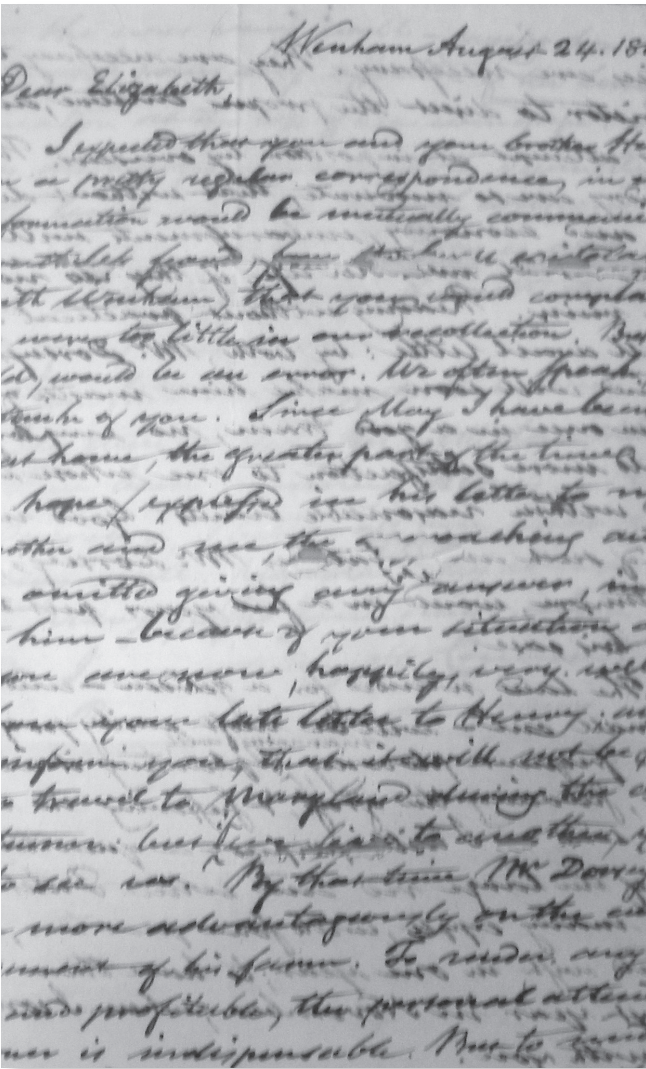 Wenham August 24. 18
Dear Elizabeth,
I expected that you and your brother He
a pretty regular correspondence, in
formation would be mutually communi
with Wenham, that you would compla
were too little in our recollection. But
would be an error. We often speak
think of you. Since May I have been
at home, the greater part of the time
hope expressed in his letter to
mother and me, the approaching au
omitted giving any answer, in
him because of your situation
you are now, happily, very well
from your late letter to Henry: an
inform you, that it will not be
travel to Maryland during the
autumn: but
to see us. By that time Mr Dorsey
more advantageously on the
of his farm. To render any
and profitable, the personal atten
is indispensable. But to